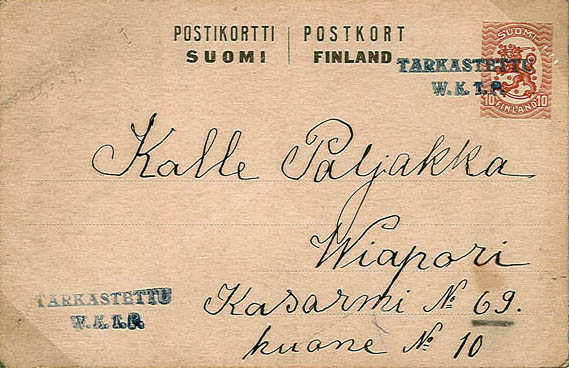 POSTIKORTTI | POSTKORT
SUOMI | FINLAND
TARKASTETTU
W.K.T.P.
SUOMI
10 FINLAND 10
Kalle Paljakka
Wiapori
Kasarmi № 69.
huone № 10
TARKASTETTU
W.K.T.P.